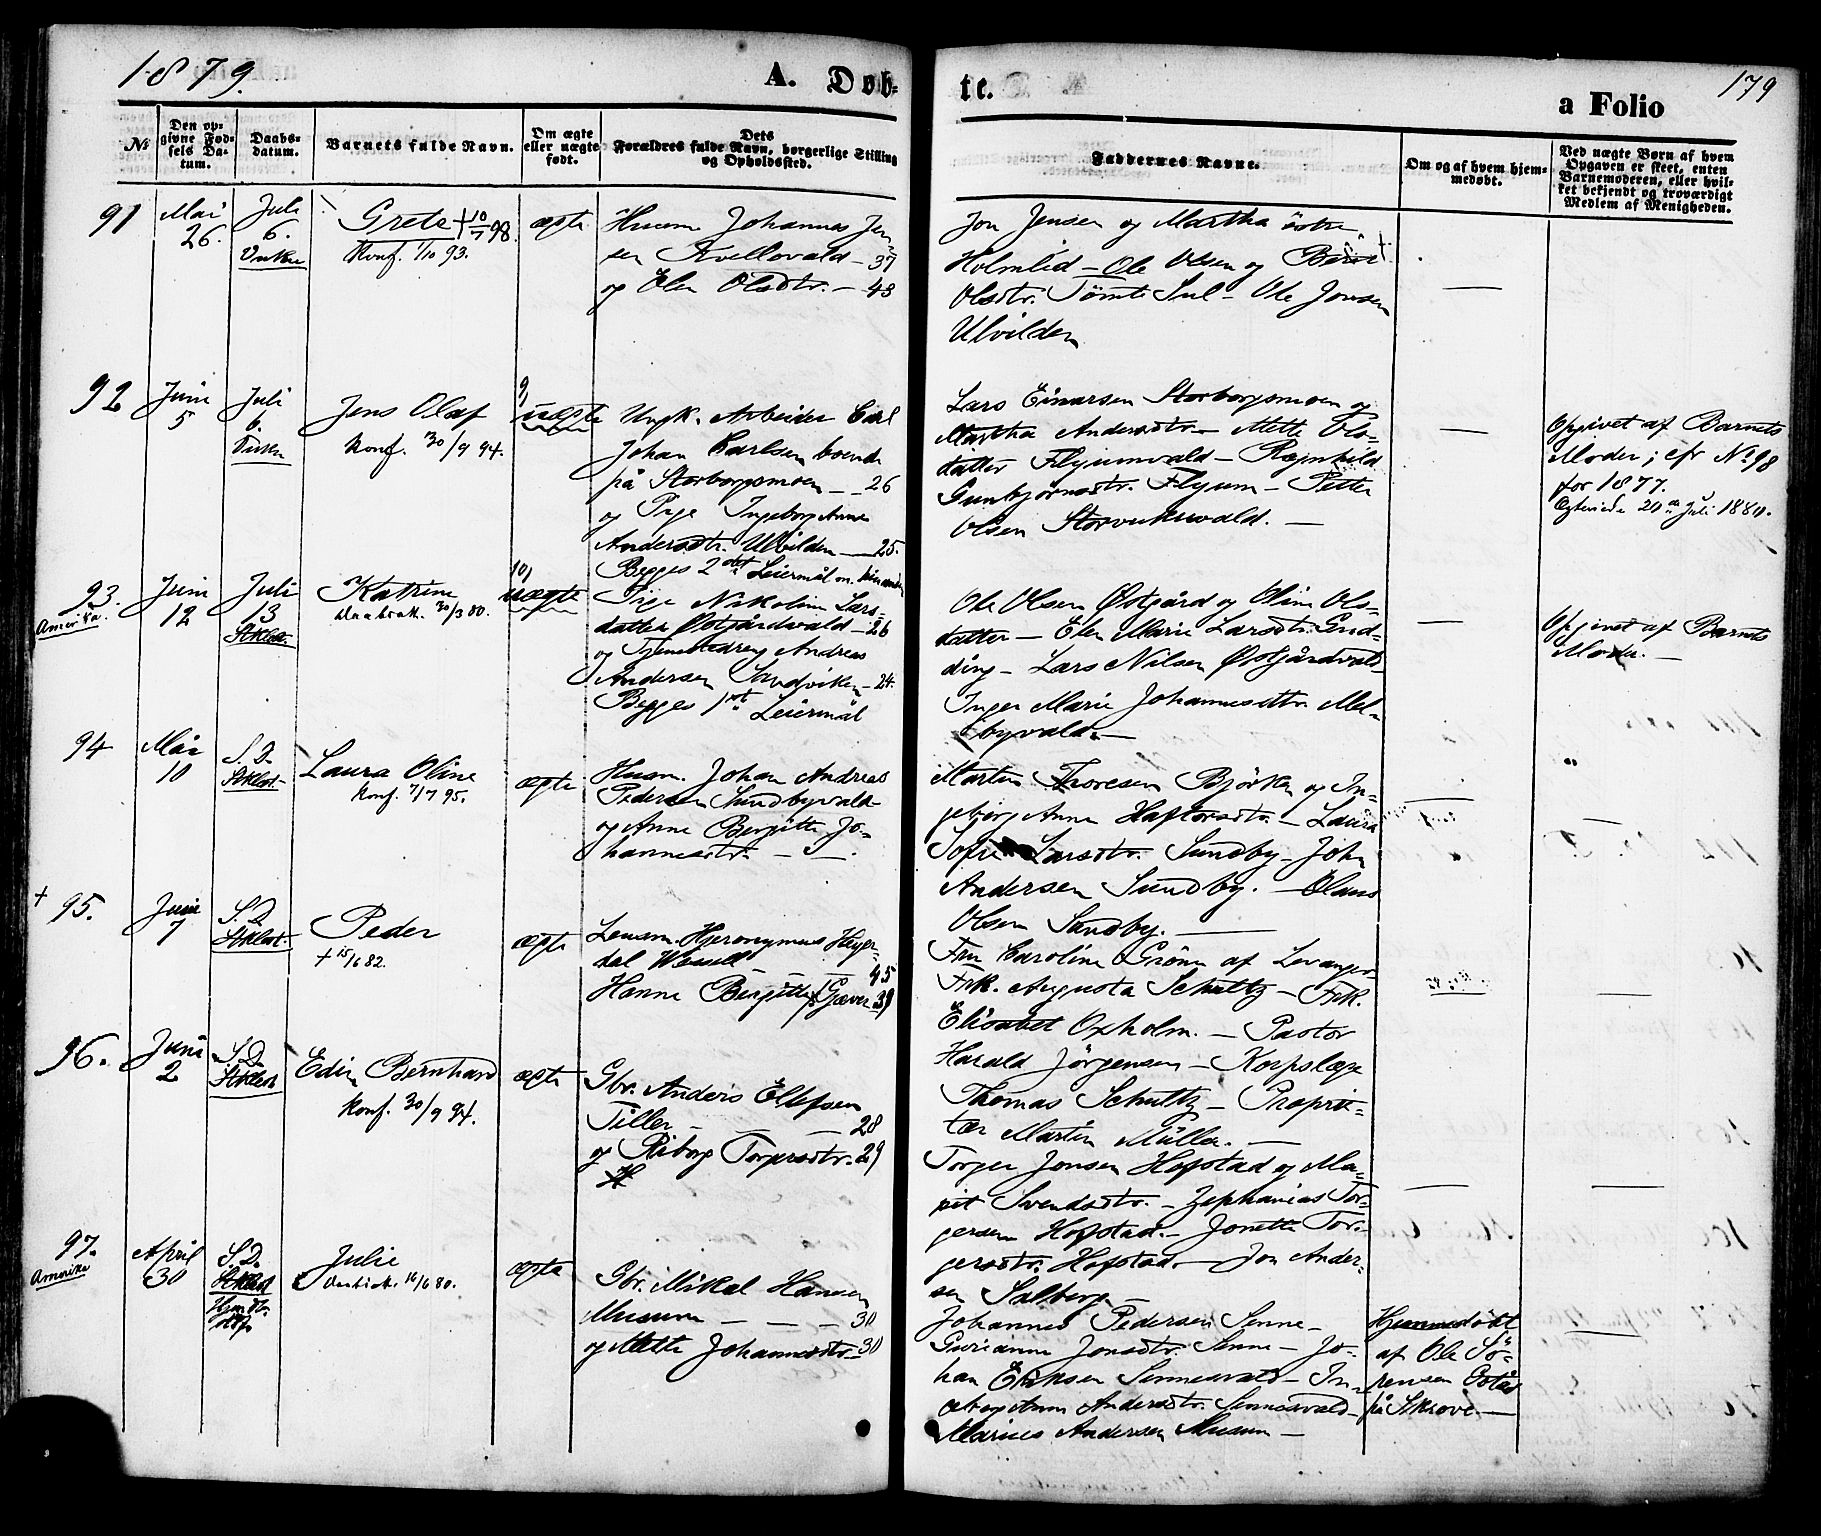 1879.
A. Døb-
te.
a Folio
179
No
Den op-
givne Fød-
sels Da-
tum.
Daabs-
datum.
Barnets fulde Navn.
Om ægte
eller uægte
født.
Dets
Forældres fulde Navn, borgerlige Stilling
og Opholdssted.
Faddernes Navne.
Om og af hvem hjem-
medøbt.
Ved uægte Børn af hvem
Opgaven er skeet, enten
Barnemoderen, eller hvil-
ket bekjendt og troværdigt
Medlem af Menigheden.
91
Mai
26.
Juli
6.
Vuku
Grete + 10/7 98.
Konf. 1/10 93.
ægte
Husm. Johannes Jen-
sen Kvellovald - 37
og Elen Olsdtr. - 48
Jon Jensen og Martha östre
Holmlid - Ole Olsen og Berit
Olsdtr. Tømte Sul - Ole Jonsen
Ulvilden
92
Juni
5
Juli
6.
Vuku
Jens Olaf
Konf. 30/9 94.
9)
uægte
Ungk. Arbeider Carl
Johan Carlsen boende
på Storborgsmoen - - 26
og Pige Ingeborg Anna
Andersdtr. Ulvilden - 25.
Begges 2det Leiermål m. hinanden
Lars Einarsen Storborgsmoen og
Martha Andersdtr. - Mette Ols-
datter Flyumvald - Ragnhild
Gunbjørnsdtr. Flyum - Petter
Olsen Storvukuvald. -
Opgivet af Barnets
Moder; cfr No 98
for 1877.
Ægteviede 20de Juli 1880.
93.
Amerika.
Juni
12
Juli
13
Stklest.
Katrine
Daabsatt. 30/3 80.
10)
uægte
Pige Nikoline Lars-
datter Østgårdvald - 26
og Tjenestedreng Andreas
Andersen Sandviken - 24.
Begges 1ste Leiermål
Ole Olsen Østgård og Oline Ols-
datter - Elen Marie Larsdtr. Gud-
ding - Lars Nilsen Østgårdvald
Inger Marie Johannesdtr. Mel-
byvald. -
Opgivet af Barnets
Moder. -
94
Mai
10
S. D.
Stklest.
Laura Oline
Konf. 7/7 95.
ægte
Husm. Johan Andreas
Pedersen Sundbyvald -
og Anne Bergitte Jo-
hannesdtr. - -
Martin Thoresen Björken og In-
geborg Anna Haftorsdtr. - Laura
Sofie Larsdtr. Sundby - John
Andersen Sundby. - Olaus
Olsen Sundby. -
+ 95.
Juni
7
S. D.
Stklest.
Peder
+ 15/6 82.
ægte
Lensm. Hjeronymus Heyer-
dal Wessell - - - 45
Hanne Bergitte Gjæver 39
Fru Caroline Grönn af Levanger -
Frk. Augusta Schultz - Frk.
Elisabet Oxholm. - Pastor
Harald Jörgensen - Korpslæge
Thomas Schultz - Proprie-
tær Martin Müller. -
96.
Juni
2
S. D.
Stklest
Edin Bernhard
Konf. 30/9 94.
ægte
Gbr. Anders Ellefsen
Tiller - - - 28
og Riborg Torgersdtr. - 29
Torger Jonsen Hofstad og Ma-
rit Svendsdtr. - Zephanias Tor-
gersen Hofstad. - Jonetta Tor-
gersdtr. Hofstad. - Jon Ander-
sen Salberg -
97.
Amerika
April
30
S. D.
Stklest
Julie
Daabsatt. 16/6 80.
ægte
Gbr. Mikal Hansen
Musum - - - 30
og Mette Johannesdtr - 30
Johannes Pedersen Senne -
Gurianna Jonsdtr. Senne - Jo-
han Eriksen Sennesvald - In-
geborg Anna Andersdtr. Sennesvald -
Marius Andersen Musum -
Hjemmedöbt
af Ole Sö-
rensen
på Skrove. -